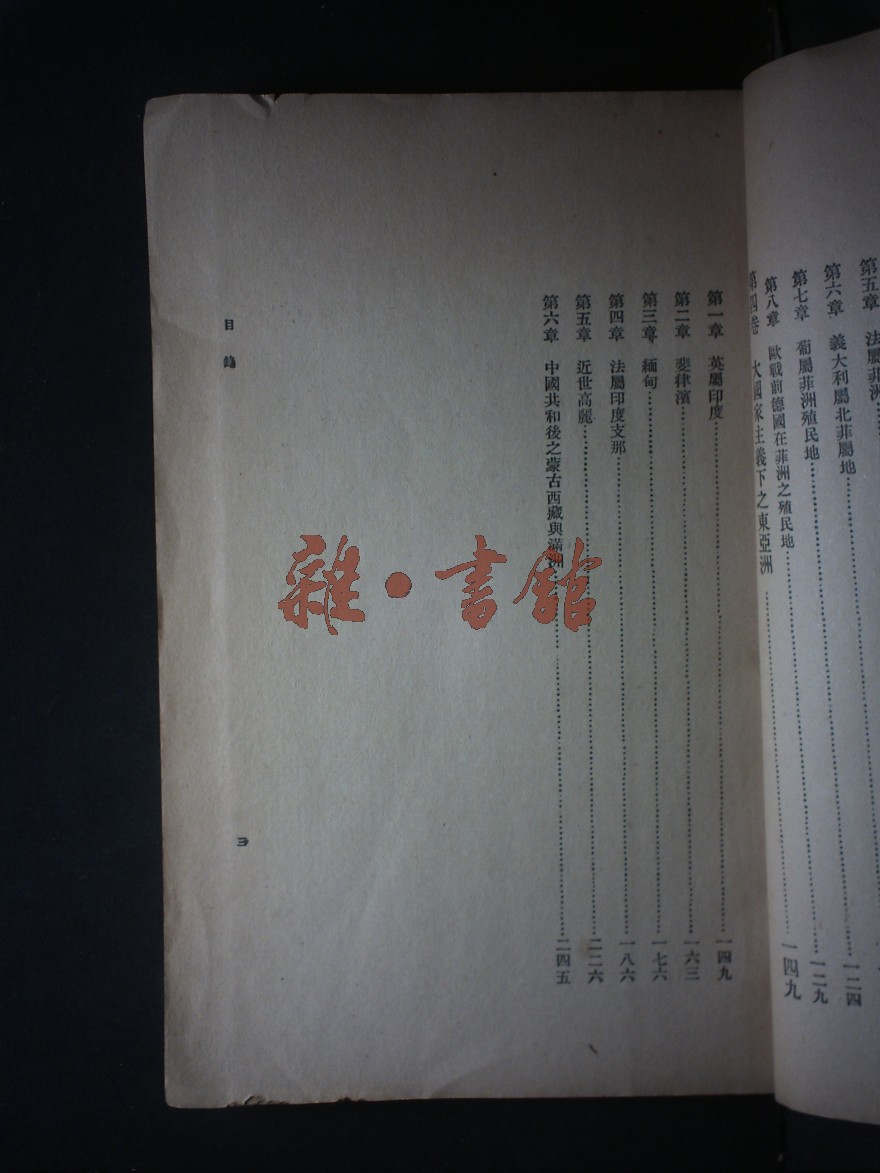 第五章 法屬菲洲
第六章 義大利屬北菲屬地
第七章 葡屬菲洲殖民地……一二四
第八章 歐戰前德國在菲洲之殖民地……一二九
第四卷 大國家主義下之東亞洲……一四九
第一章 英屬印度……一四九
第二章 斐律濱……一六三
第三章 緬甸……一七六
第四章 法屬印度支那……一八六
第五章 近世高麗……二二六
第六章 中國共和後之蒙古西藏與滿洲……二四五
目錄
三
雜·書館